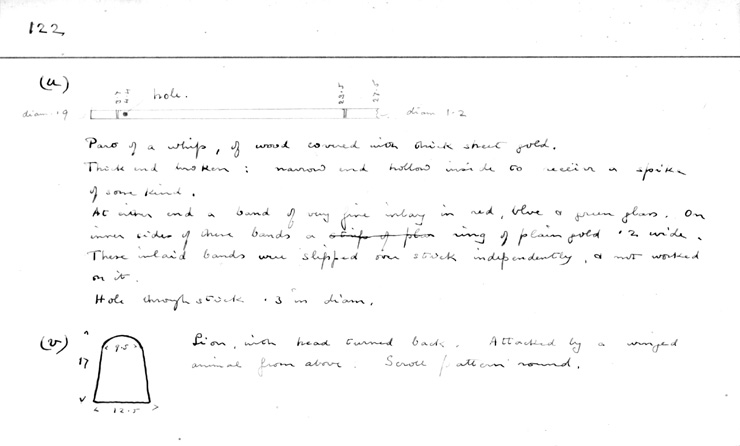 122
(u)
hole.
23.5
27.5
diam .9
diam 1.2
Part of a whip, of wood covered with thick sheet gold.
Thick end broken : narrow end hollow inside to receive a spike
of some kind.
At either end a band of very fine inlay in red, blue & green glass. On
inner sides of these bands a strip of plai ring of plain gold .2 wide.
These inlaid bands were slipped over stock independently, & not worked
on it.
Hole through stock .3 in diam.
(v)
9.5
17
12.5
Lion, with head turned back. Attacked by a winged
animal from above. Scroll pattern round.